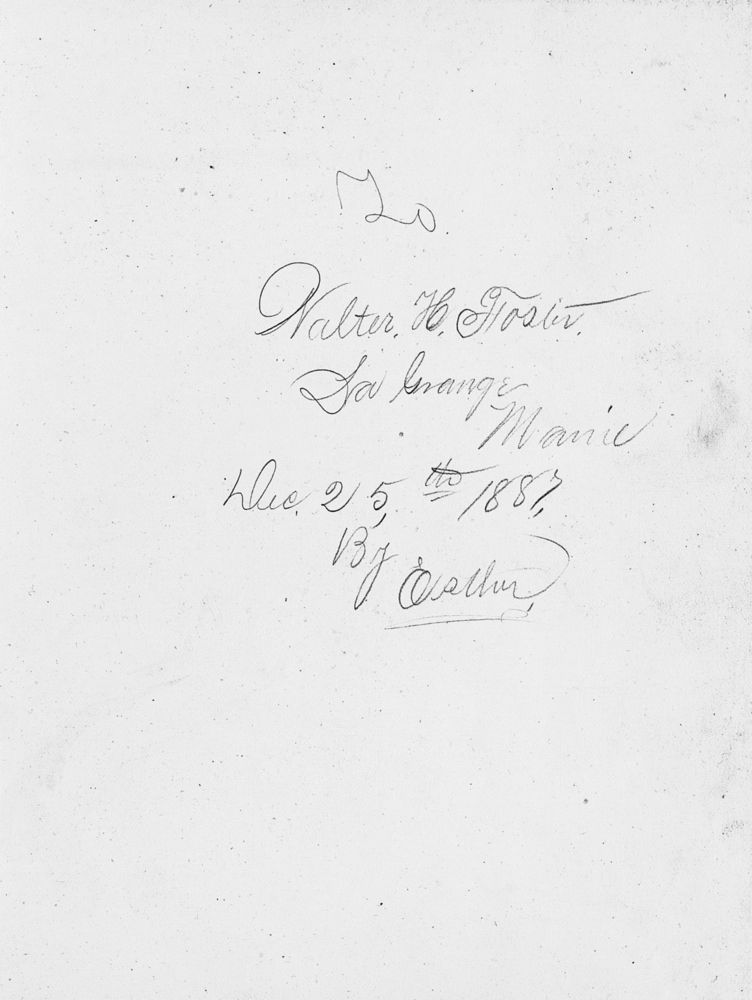 To
Walter. H. Foster.
La Grange
Maine
Dec. 25,th 1887,
By
Esther,